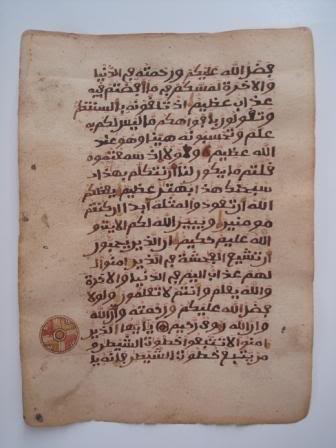 فضل الله عليكم ورحمته في الدنيا
والاخرة لمسكم في ما افضتم فيه
عذاب عظيم اذ تلقونه بالسنتكم
وتقولون بافواهكم ما ليس لكم به
علم وتحسبونه هينا وهو عند
الله عظيم ولولا اذ سمعتموه
قلتم ما يكون لنا ان نتكلم بهذا
سبحنك هذا بهتن عظيم يعظكم
الله ان تعودوا لمثله ابدا ان كنتم
مومنين ويبين الله لكم الايت و
الله عليم حكيم ان الذين يحبون
ان تشيع الفحشة في الذين امنوا
لهم عذاب اليم في الدنيا والاخرة
والله يعلم وانتم لا تعلمون ولولا
فضل الله عليكم ورحمته وان الله
وان الله روف رحيم يايها الذين
امنوا لا تتبعوا خطوت الشيطن و
من يتبع خطوت الشيطن فانه يا